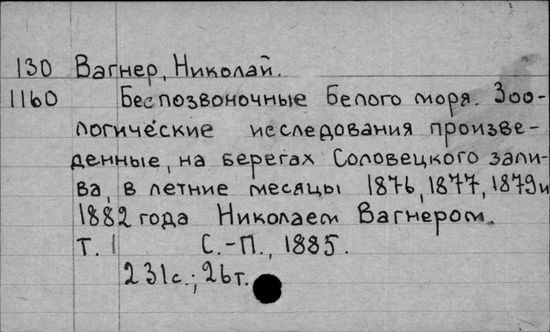 130 Вагнер, Николай.
1160 Беспозвоночные Белого моря. Зоо-
логические исследования произве-
денные, на берегах Соловецкого зали-
ва, в летние месяцы 1876, 1877, 1879 и
1882 года Николаем Вагнером.
Т. 1 С.-П., 1885.
231с.; 26т.